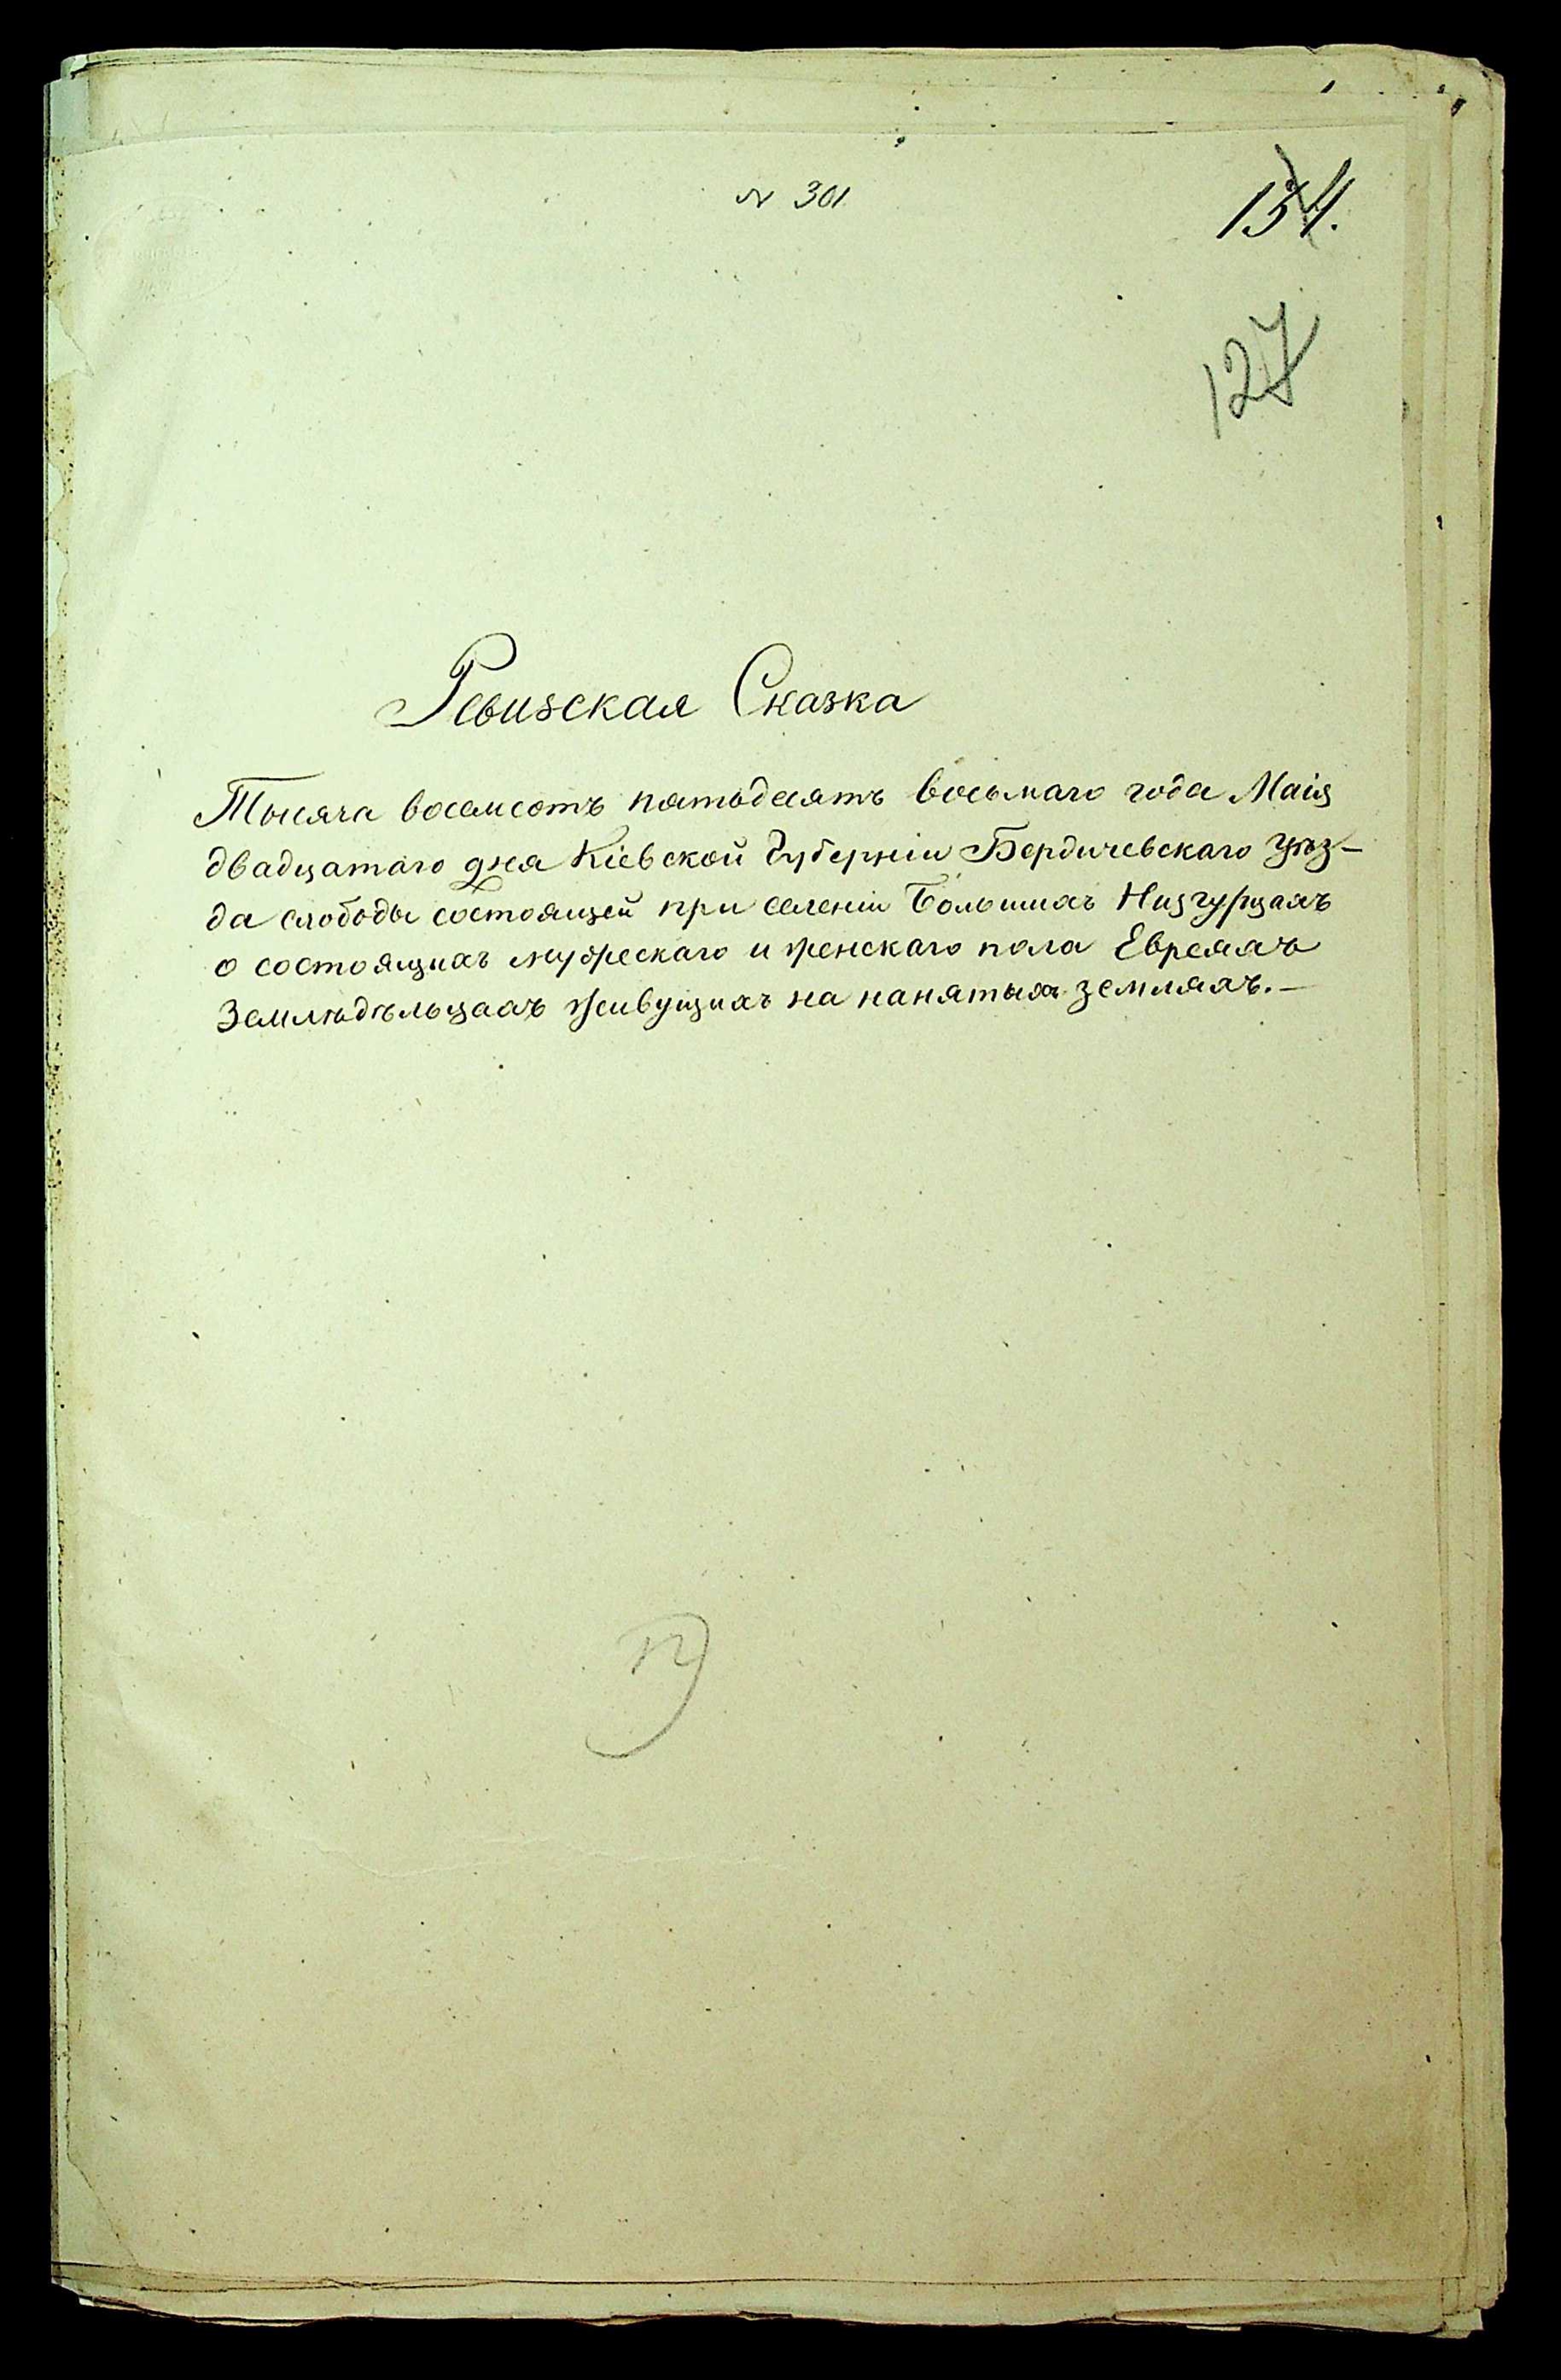 № 301
134.
127
Ревизская Сказка
Тысяча восемсотъ пятьдесятъ восьмаго года Маія
двадцатаго дня Кіевской Губерніи Бердичевскаго Уѣз-
да слободы состоящей при селеніи Большихъ Низгурцахъ
о состоящихъ мужескаго и женскаго пола Евреяхъ
Земледѣльцахъ живущихъ на нанятыхъ земляхъ.-